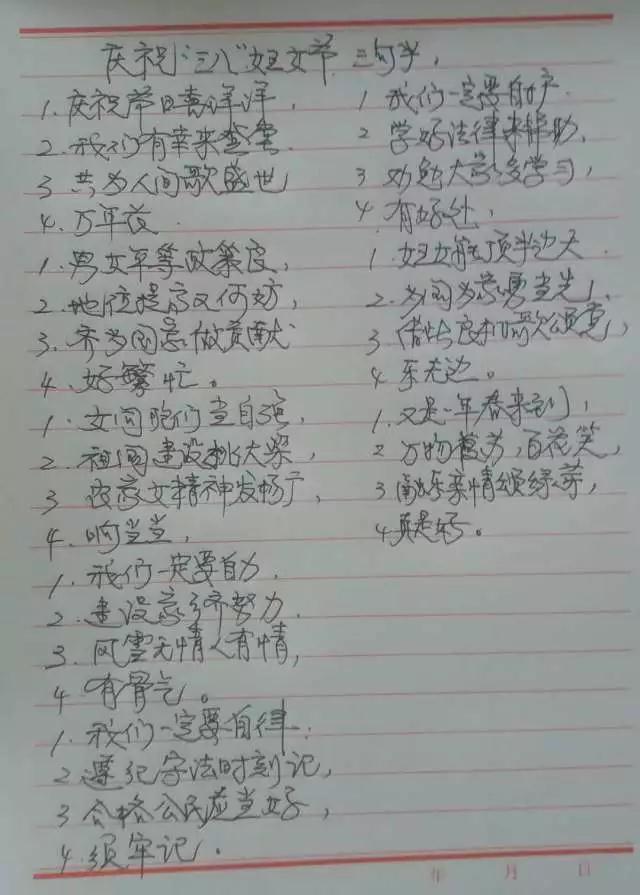 庆祝“三八”妇女节 三句半,
1. 庆祝节日喜洋洋,
2. 我们有幸来登台
3 共为人间歌盛世
4. 万年
1. 男女平等政策良,
2. 地位提高又何妨,
3. 齐为国家做贡献
4. 好繁忙。
1. 女同胞们当自强,
2. 祖国建设挑大梁,
3 农家女精神发扬广,
4. 响当当,
1. 我们一定要自力,
2. 建设家乡齐努力.
3. 风雪无情人有情,
4 有骨气。
1. 我们一定要自律.
2 遵纪守法时刻记,
3 合格公民应当好,
4. 须牢记.
1 我们一定要自
2 学好法律来帮助,
3 勉大家多学习,
4 有好处,
1. 妇女能顶半边天
2. 为国为家勇当先,
3 借此良机歌颂党,
4 乐无边。
1. 又是一年春来到,
2 万物复苏,百花笑,
3 亲情
4 真是好。
年 月 日